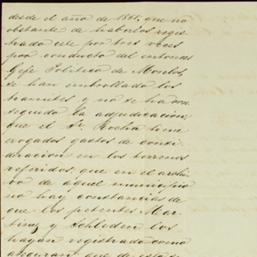 desde el año de 1861, que no
obstante de haberlos regis
trado este por tres veces
por conducto del entonces
Gefe Politico de Morelos,
se han entorpecido los
tramites y no se ha con
seguido la adjudicacion;
que el Sr. Rocha tiene
erogados gastos de consi
deracion en los terrenos
referidos; que en el archi
vo de aquel municipio
no hay constancias de
que los petentes Mar
tinez y
hayan registrado como
aseguran; que de esto